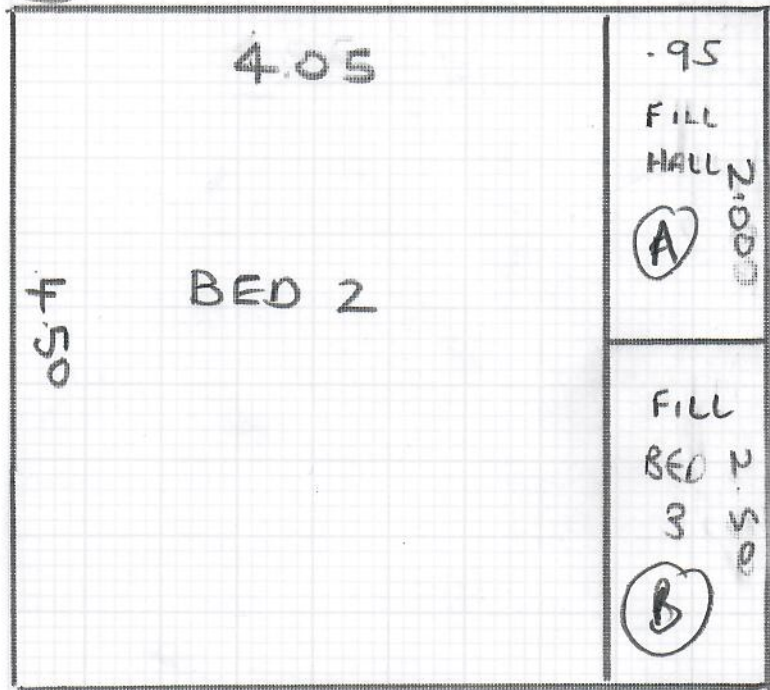 4.05
BED 2
4.50
.95
FILL
HALL
2.00
A
FILL
BED
3
2.50
B